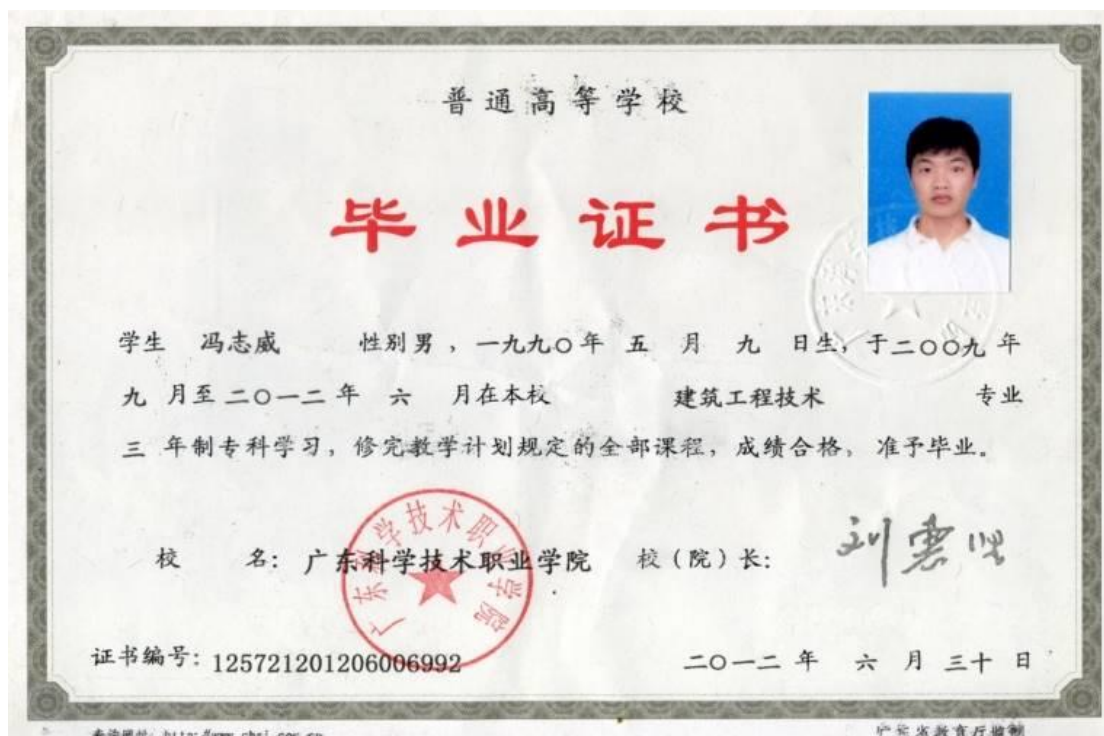 普通高等学校
毕业证书
学生 冯志威 性别男，一九九〇年 五 月 九 日生，于二〇〇九年
九 月至二〇一二年 六 月在本校 建筑工程技术 专业
三 年制专科学习，修完教学计划规定的全部课程，成绩合格，准予毕业。
校 名：广东科学技术职业学院 校（院）长：
广东科学技术职业学院
证书编号：125721201206006992 二〇一二 年 六 月 三十 日
广东省教育厅监制